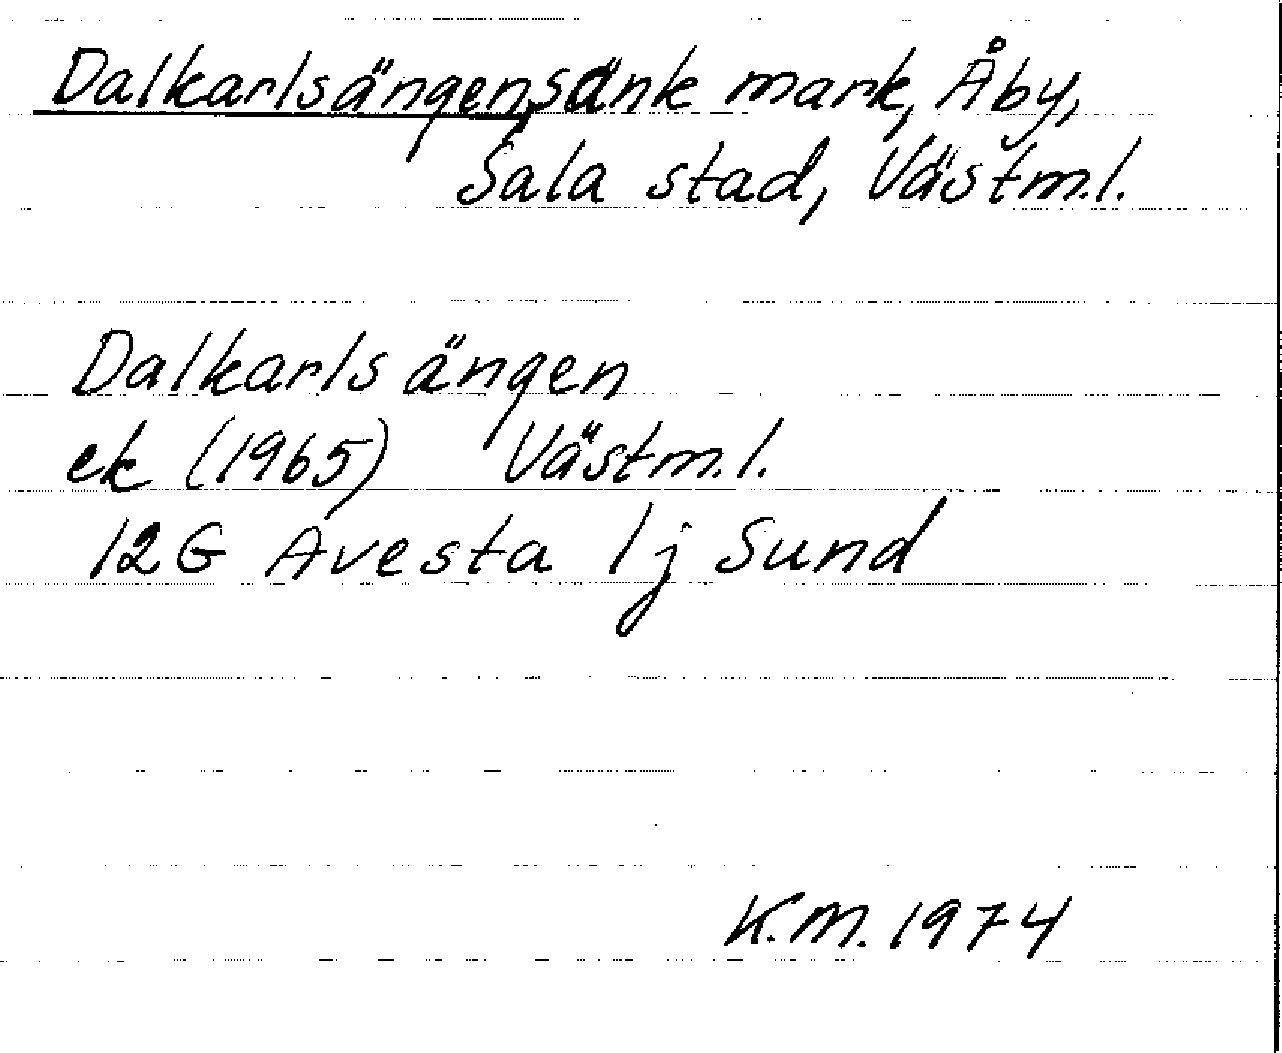 Dalkarlsängen, sänk mark, Åby,
Sala stad, Västm.l.
Dalkarlsängen
ek (1965) Västm.l.
12G Avesta 1j Sund
K.M. 1974